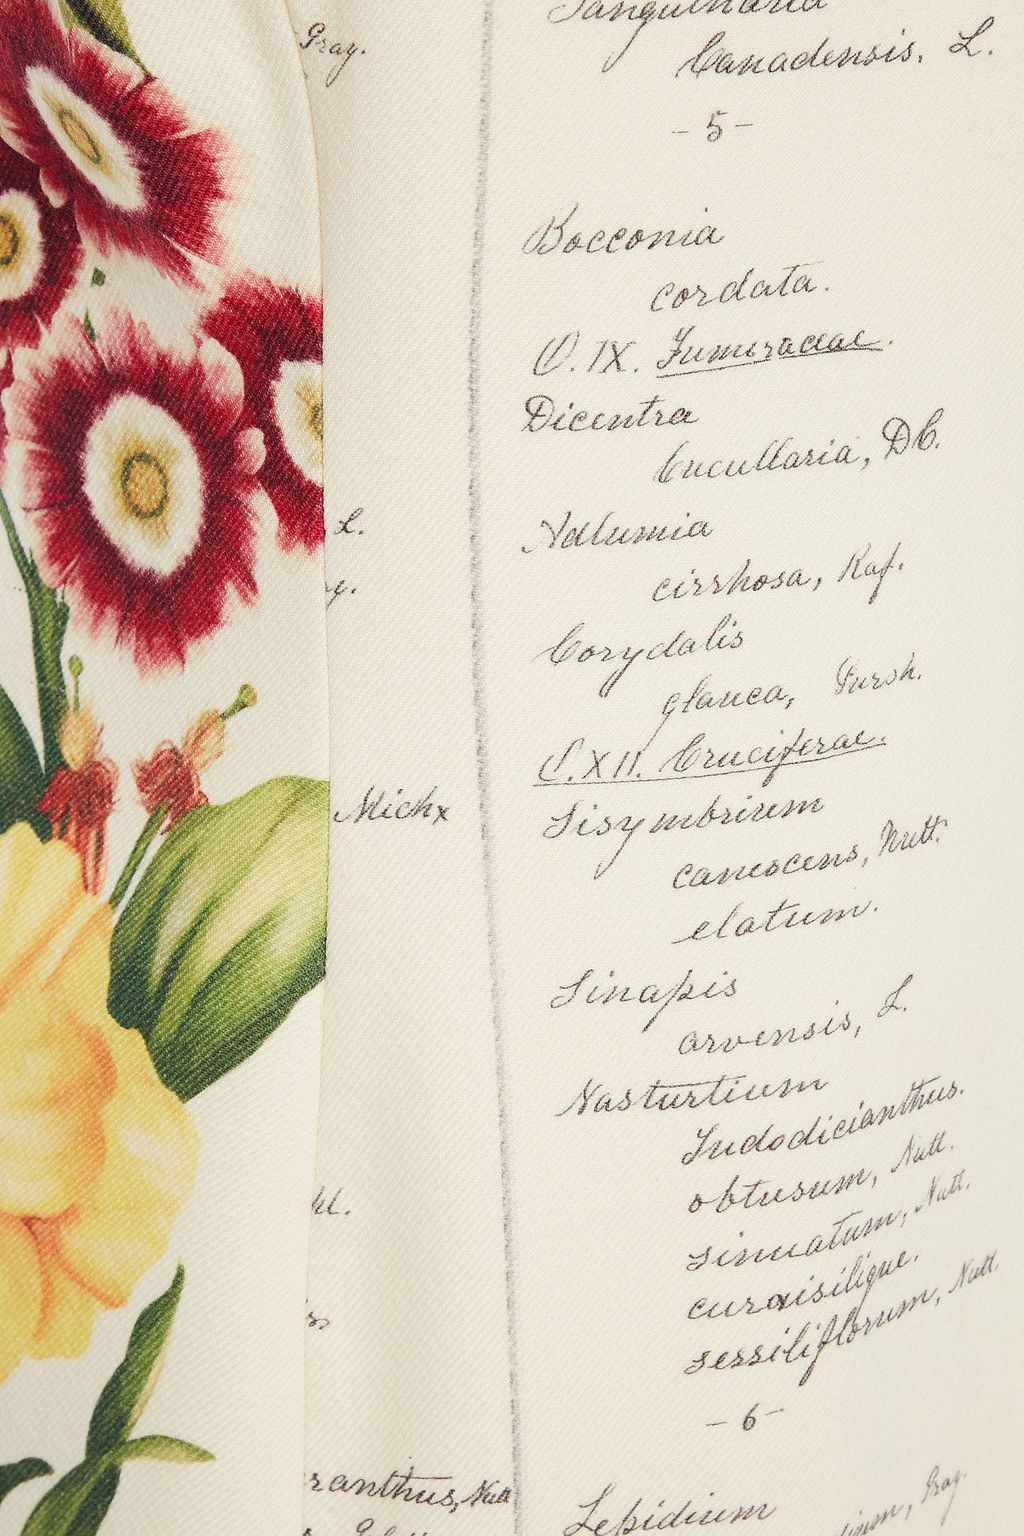 Gray.
L.
Michx
ranthus, Nutt
Sanguinaria
Canadensis. L.
-5-
Bocconia
cordata.
O. IX. Fumiraceae.
Dicentra
Cucullaria, DC.
Adlumia
cirrhosa, Raf.
Corydalis
glauca, Pursh.
O. XII. Cruciferae.
Sisymbrium
canescens, Nutt.
elatum.
Sinapis
arvensis, L.
Nasturtium
obtusum, Nutt.
sinuatum, Nutt.
curvisilique.
sessiliflorum, Nutt.
-6-
Lepidium
Gray.